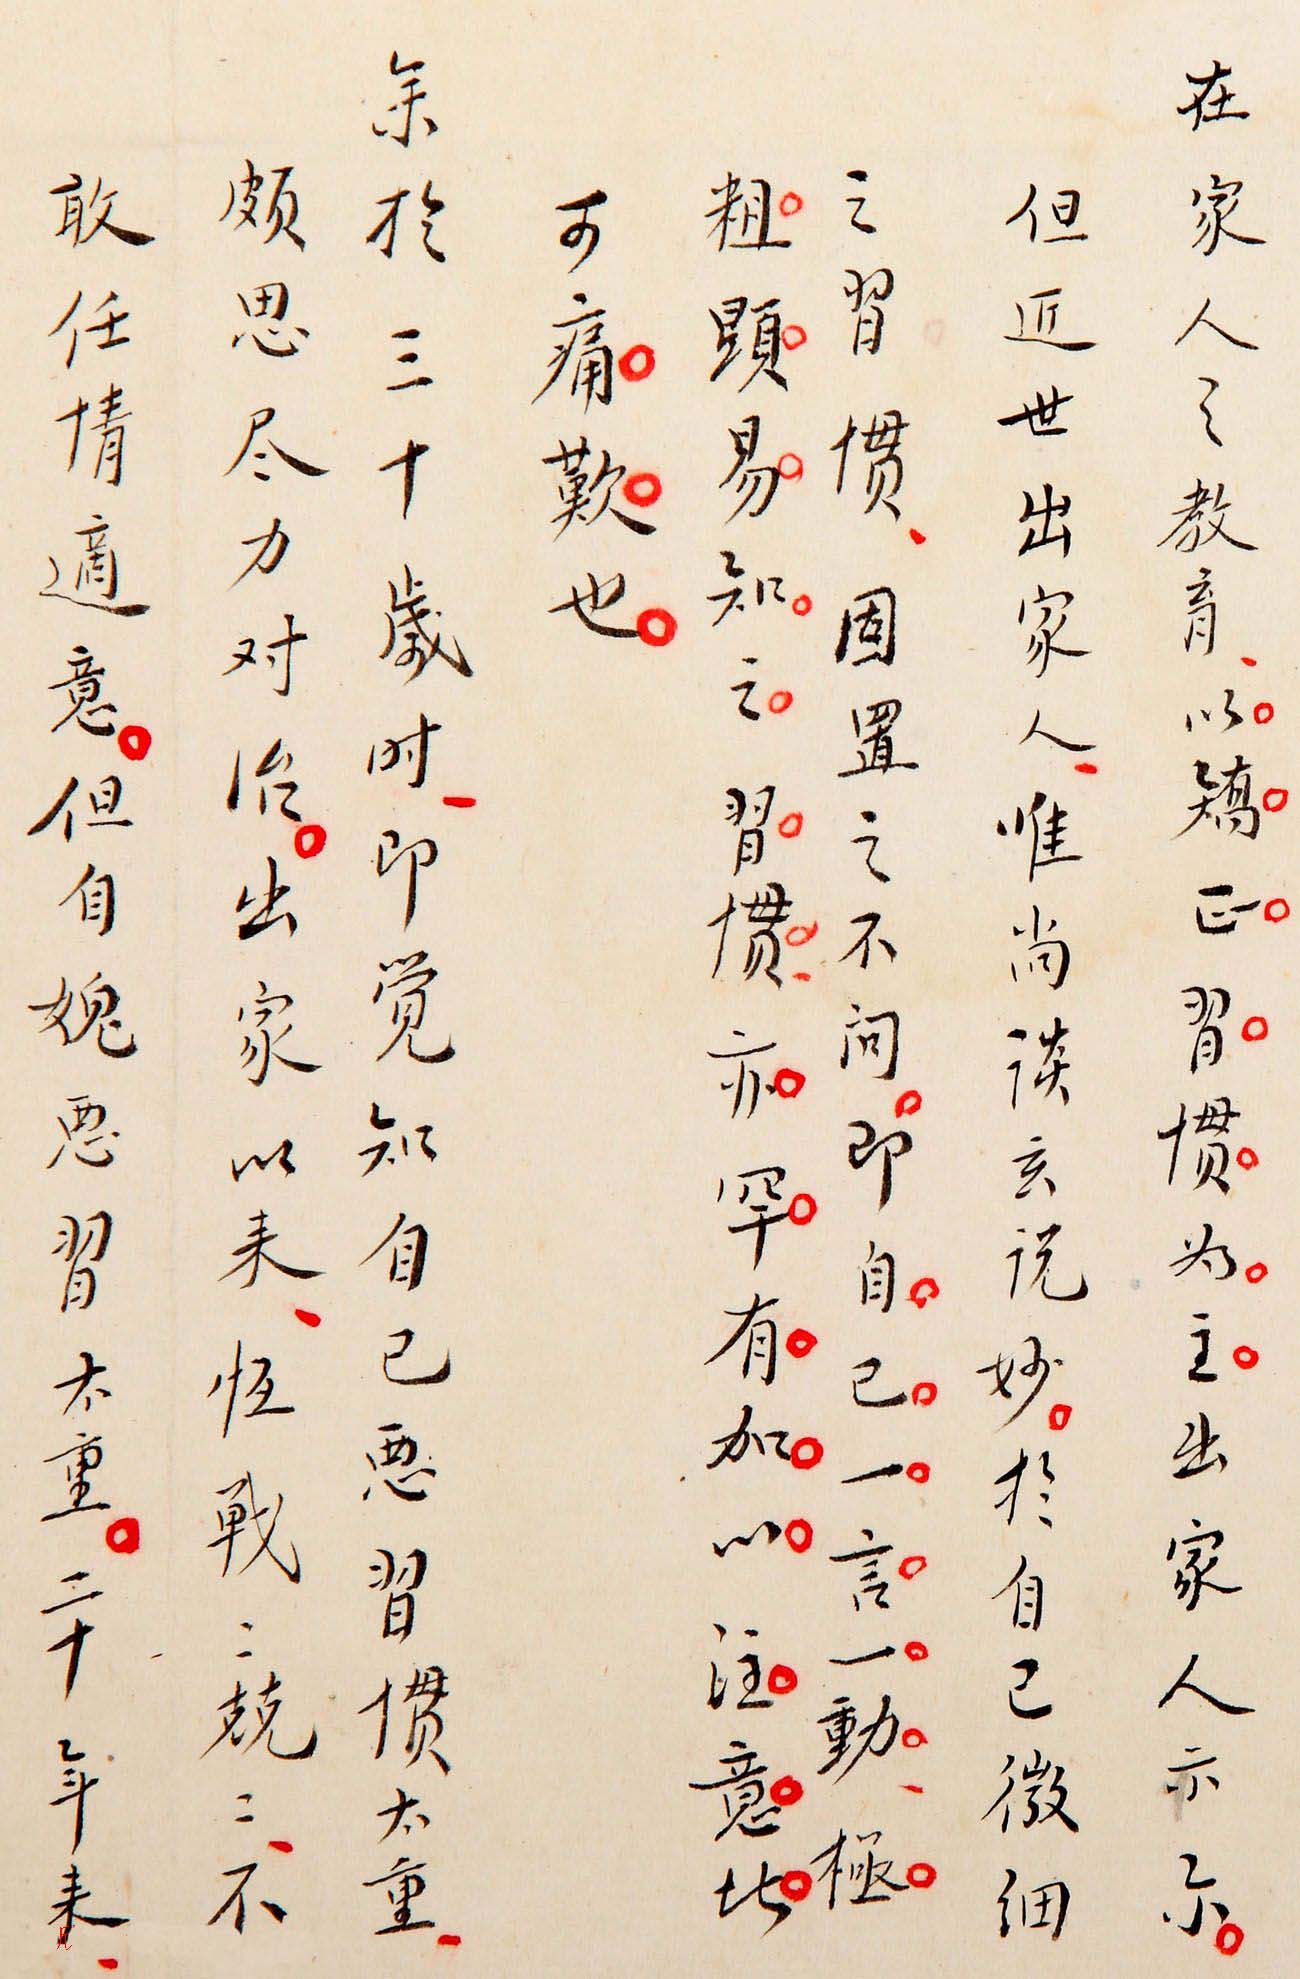 在家人之教育、以矯正習惯为主出家人亦尔。
但近世出家人、唯尚談玄说妙。於自己微细
之習惯、固置之不问。即自己一言一動、極
粗顕易知之習惯、亦罕有加以注意此
可痛歎也。
余於三十歲时、即觉知自己恶習惯太重、
頗思尽力对治。出家以来、恆戰〻競〻、不
敢任情適意。但自媿恶習太重。二十年来、